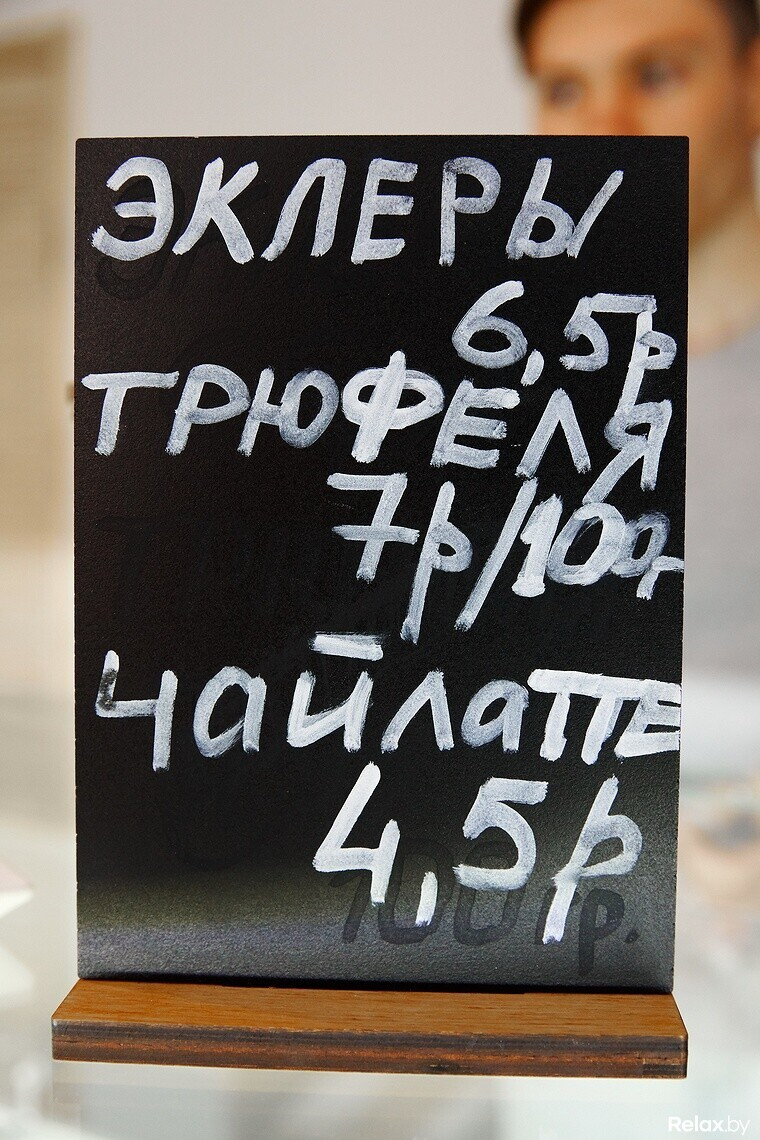 ЭКЛЕРЫ
6,5р
ТРЮФЕЛЯ
7р/100г
ЧАЙЛАТТЕ
4,5р
100 гр.
Relax.by